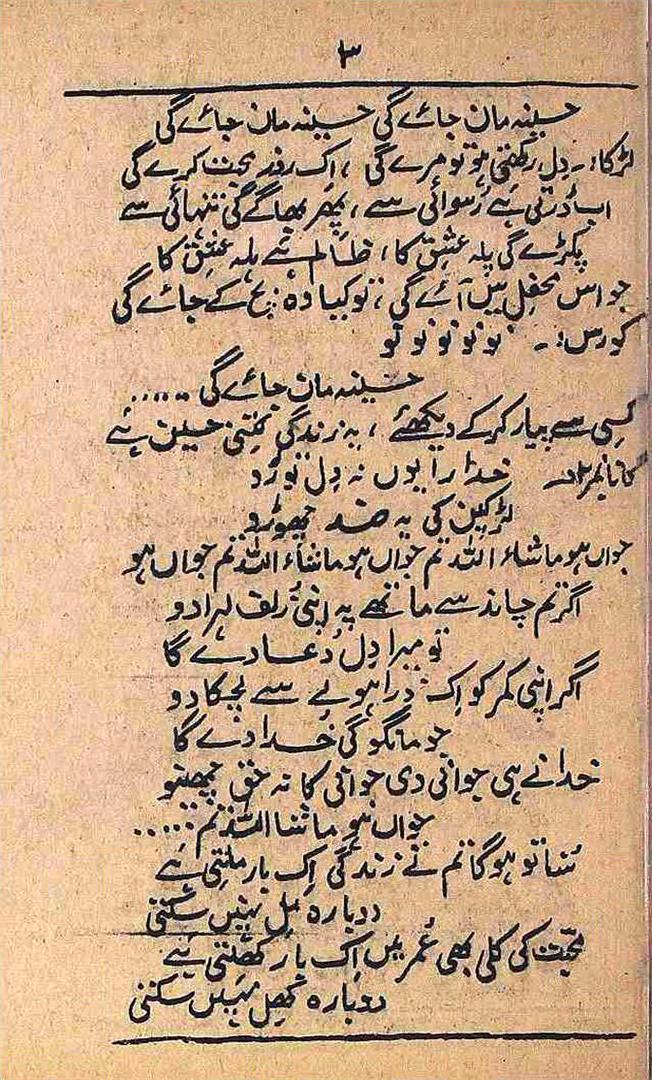 ۳
حسینہ مان جائے گی حسینہ مان جائے گی
لڑکا:۔ دِل رکھتی ہو تو مرے گی ، اِک روز محبت کرے گی
اب ڈرتی ہے رُسوائی سے ، پھر بھاگے گی تنہائی سے
پکڑے گی پلہ عشق کا ، ظالم ہے پلہ عشق کا
جو اس محفل میں آئے گی ، تو کیا وہ بچ کے جائے گی
کورس:۔ نو نو نو نو نو
حسینہ مان جائے گی ......
کسِی سے پیار کر کے دیکھئے ، یہ زندگی کتنی حسین ہے
گانا نمبر خدا را یوں نہ دِل توڑو
لڑکپن کی یہ ضد چھوڑو
جواں ہو ماشاء اللہ تم جواں ہو ماشاء اللہ تم جواں ہو
اگر تم چاند سے ماتھے پہ اپنی زُلف لہرا دو
تو میرا دِل دُعا دے گا
اگر اپنی کمر کو اِک ذرا ہولے سے لچکا دو
جو مانگو گی خُدا دے گا
خدا نے ہی جوانی دی جوانی کا نہ حق چھینو
جواں ہو ماشا اللہ تم .....
سُنا تو ہو گا تم نے زندگی اِک بار ملتی ہے
دوبارہ مِل نہیں سکتی
محبّت کی کلی بھی عُمر میں اِک بار کھِلتی ہے
دوبارہ کھِل نہیں سکتی